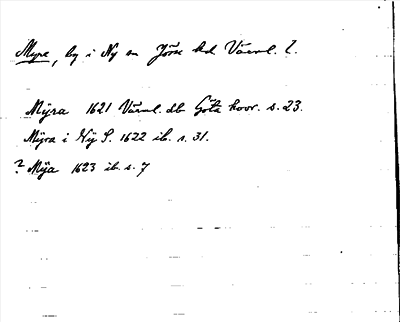 Myra, by i Ny sn Jösse hd Värml. l.
Mÿra 1621 Värml. db Göta hovr. s. 23.
Mÿra i Nÿ S. 1622 ib. s. 31.
? Mÿa 1623 ib. s. 7